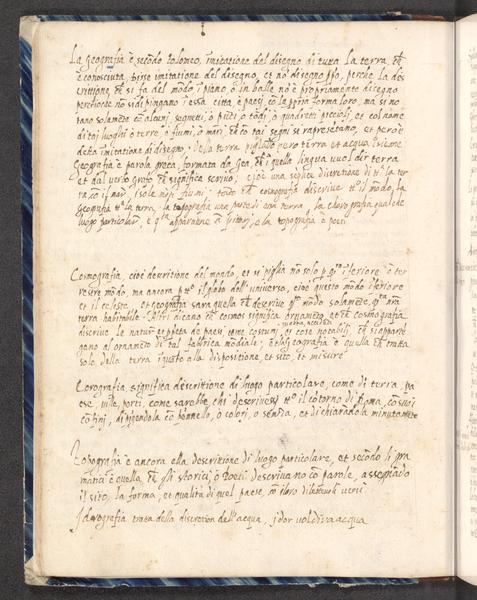 La geografia è secōdo Tolomeo, imitatione del disegno di tutta la terra, che
è conosciuta, disse imitatione del disegno, et nō disegno perche la des
crittione, che si fa del mōdo ī piano, ō in balle nō è propriamente disegno
percioche nō si dipingano ī essa citta, e paesi cō la propria forma loro, ma si no
tano solamēte cō alcuni segnetti, ō pūti, ō tōdi, ō quadretti piccioli, et col nome
di tai luoghi ō terre, ō fiumi, ō mari, che cō tai segni si rapresētano, et però è
detta imitatione di disegno. Della terra pigliādo però terra et acqua īsieme
Geografia è parola greca, formata da gea, che ī quella lingua vuol dir terra
et dal verbo grafo che significa scrivo; cioè una descrittione di la ter
ra, co il mar, isole, fiumi: tanto che cosmografia descrive il mōdo, la
Geografia la terra, la topografia una parte di essa terra, la chorografia qualche
luogo particolar, e la topografia è poeti
Cosmografia, cioè descrittione del mondo, et si piglia nō solo p īferiore ō ter
restre mōdo, ma ancora p il globo dell'universo, cioè questo mōdo īferiore
et il celeste, et geografia sarà quella che descrive mōdo solamēte,
terra habitabile. Altri dicano che cosmos significa ornamēto, et che cosmografia
descrive le nature et p de paesi come costumi, et cose notabili, che si appar
gano al ornamēto di tal fabrica mōdiale; e la geografia è quella che tratta
solo della terra īquanto alla dispositione, et sito, et misure
Corografia significa descrittione di luogo particolare, como di terra, pa
ese, ville, porti, come sarebbe chi descrivessi il cōtorno di Roma, cō suoi
cōfini, dipigendola cō pennello, ō colori, ō senza, et dichiarādola minutamēte
Topografia è ancora ella descrittione di luogo particolare, et secōdo li gra
matici è quella che gli storici, ō Poeti descrivano cō parole, assegnādo
il sito, la forma, et qualità di quel paese, versi
Idrografia tratta della discretion dell'acqua, idor vol dir acqua